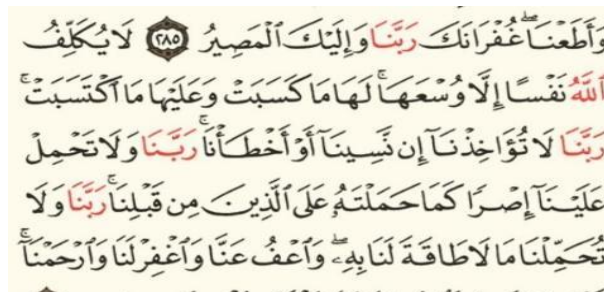 وَأَطَعۡنَاۖ غُفۡرَانَكَ رَبَّنَا وَإِلَيۡكَ ٱلۡمَصِيرُ ٢٨٥ لَا يُكَلِّفُ
ٱللَّهُ نَفۡسًا إِلَّا وُسۡعَهَاۚ لَهَا مَا كَسَبَتۡ وَعَلَيۡهَا مَا ٱكۡتَسَبَتۡۗ
رَبَّنَا لَا تُؤَاخِذۡنَآ إِن نَّسِينَآ أَوۡ أَخۡطَأۡنَاۚ رَبَّنَا وَلَا تَحۡمِلۡ
عَلَيۡنَآ إِصۡرًا كَمَا حَمَلۡتَهُۥ عَلَى ٱلَّذِينَ مِن قَبۡلِنَاۚ رَبَّنَا وَلَا
تُحَمِّلۡنَا مَا لَا طَاقَةَ لَنَا بِهِۦۖ وَٱعۡفُ عَنَّا وَٱغۡفِرۡ لَنَا وَٱرۡحَمۡنَآۚ